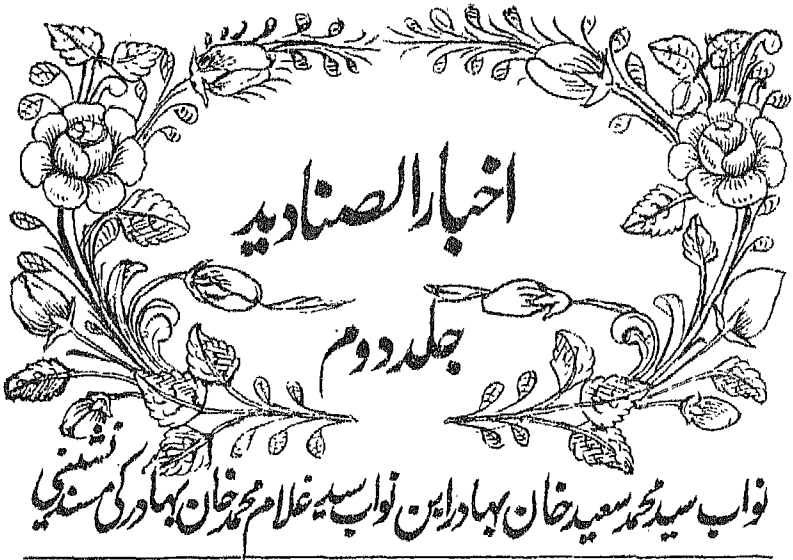 اخبار الصنادید
جلد دوم
نواب سید محمد سعید خان بہادر ابن نواب سید غلام محمد خان بہادر کی مسند نشینی